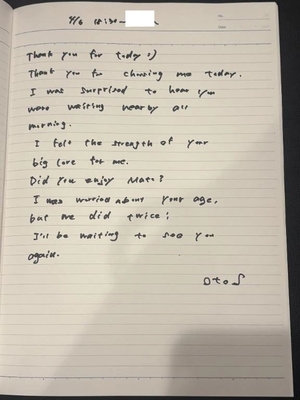 4/6 18:30~
Thank you for today :)
Thank you for choosing me today.
I was surprised to hear you
were waiting nearby all
morning.
I felt the strength of your
big love for me.
Did you enjoy Mato?
I was worried about your age,
but we did twice!
I'll be waiting to see you
again.